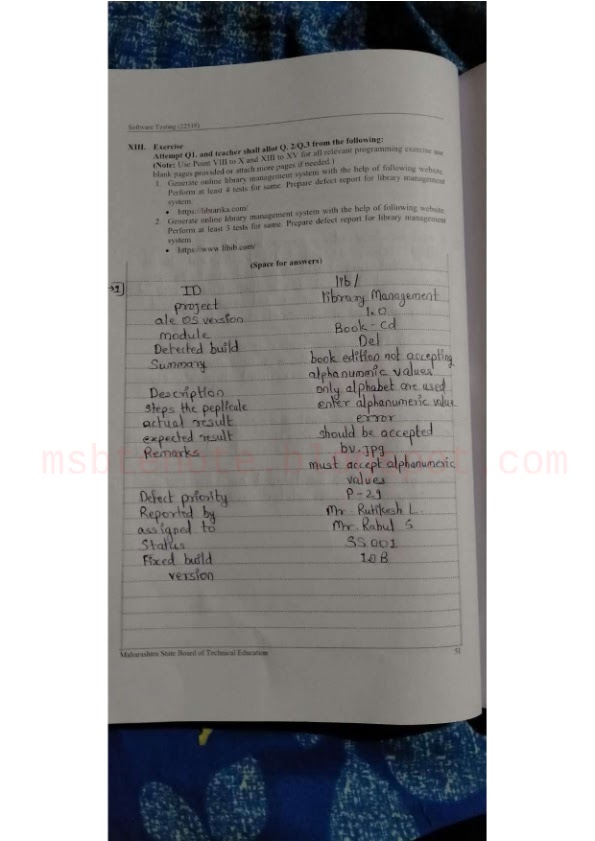 Software Testing (22518)
XIII. Exercise
Attempt Q1. and teacher shall allot Q. 2/Q.3 from the following:
(Note: Use Point VIII to X and XIII to XV for all relevant programming exercise use
blank pages provided or attach more pages if needed.)
1. Generate online library management system with the help of following website.
Perform at least 4 tests for same. Prepare defect report for library management
system.
• https://librarika.com/
2. Generate online library management system with the help of following website.
Perform at least 3 tests for same. Prepare defect report for library management
system
• https://www.libib.com/
(Space for answers)
ID lib/
project library Management
ale OS version 1.0
module Book-cd
Detected build Del
Summary book edition not accepting
alphanummic values
Description only alphabet are used
steps the peplicale enter alphanumeric value
actual result error
expected result should be accepted
Remarks bv.jpg
must accept alphanumeric
values
Defect priority P-29
Reported by Mr. Rutikesh L.
assigned to Mr. Rahul S
Status SS001
Fixed build 10B
version
Maharashtra State Board of Technical Education 51